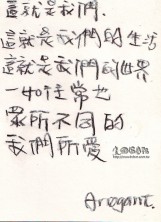 這就是我們.
這就是我們的生活
這就是我們的世界
一如往常也
眾所不同的
我們所愛
Arrogant.